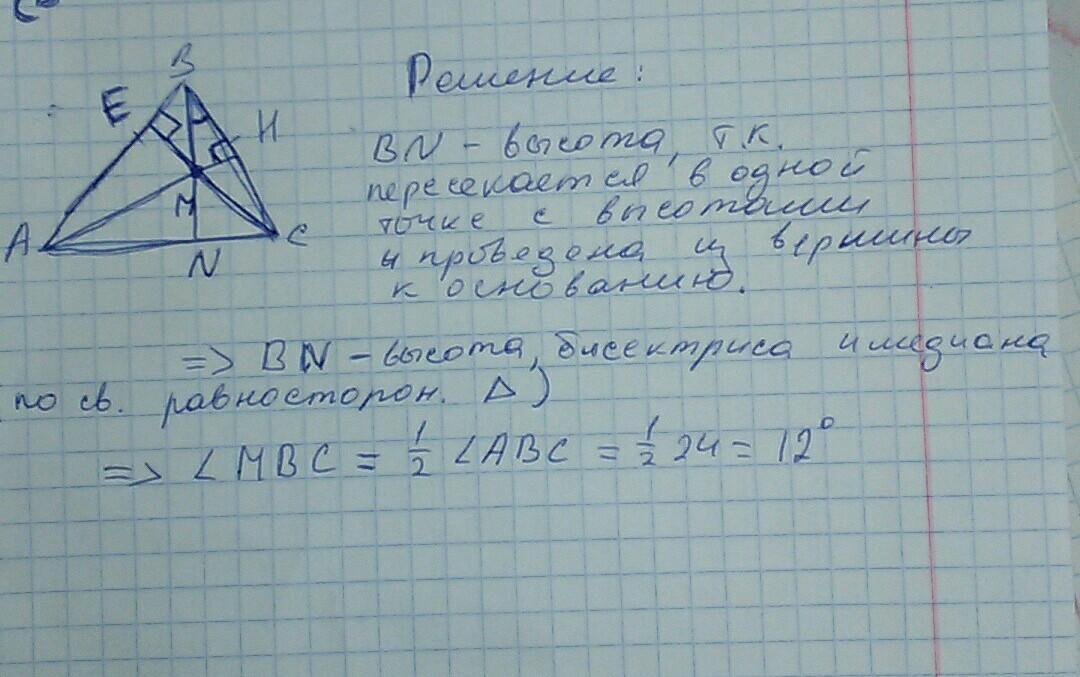 B
E
H
M
A
N
C
Решение:
BN - высота, т.к.
пересекается в одной
точке с высотами
и проведена из вершины
к основанию.
=> BN - высота, бисектриса и медиана
по св. равносторон. Δ)
=> ∠MBC = 1/2 ∠ABC = 1/2 24 = 12°